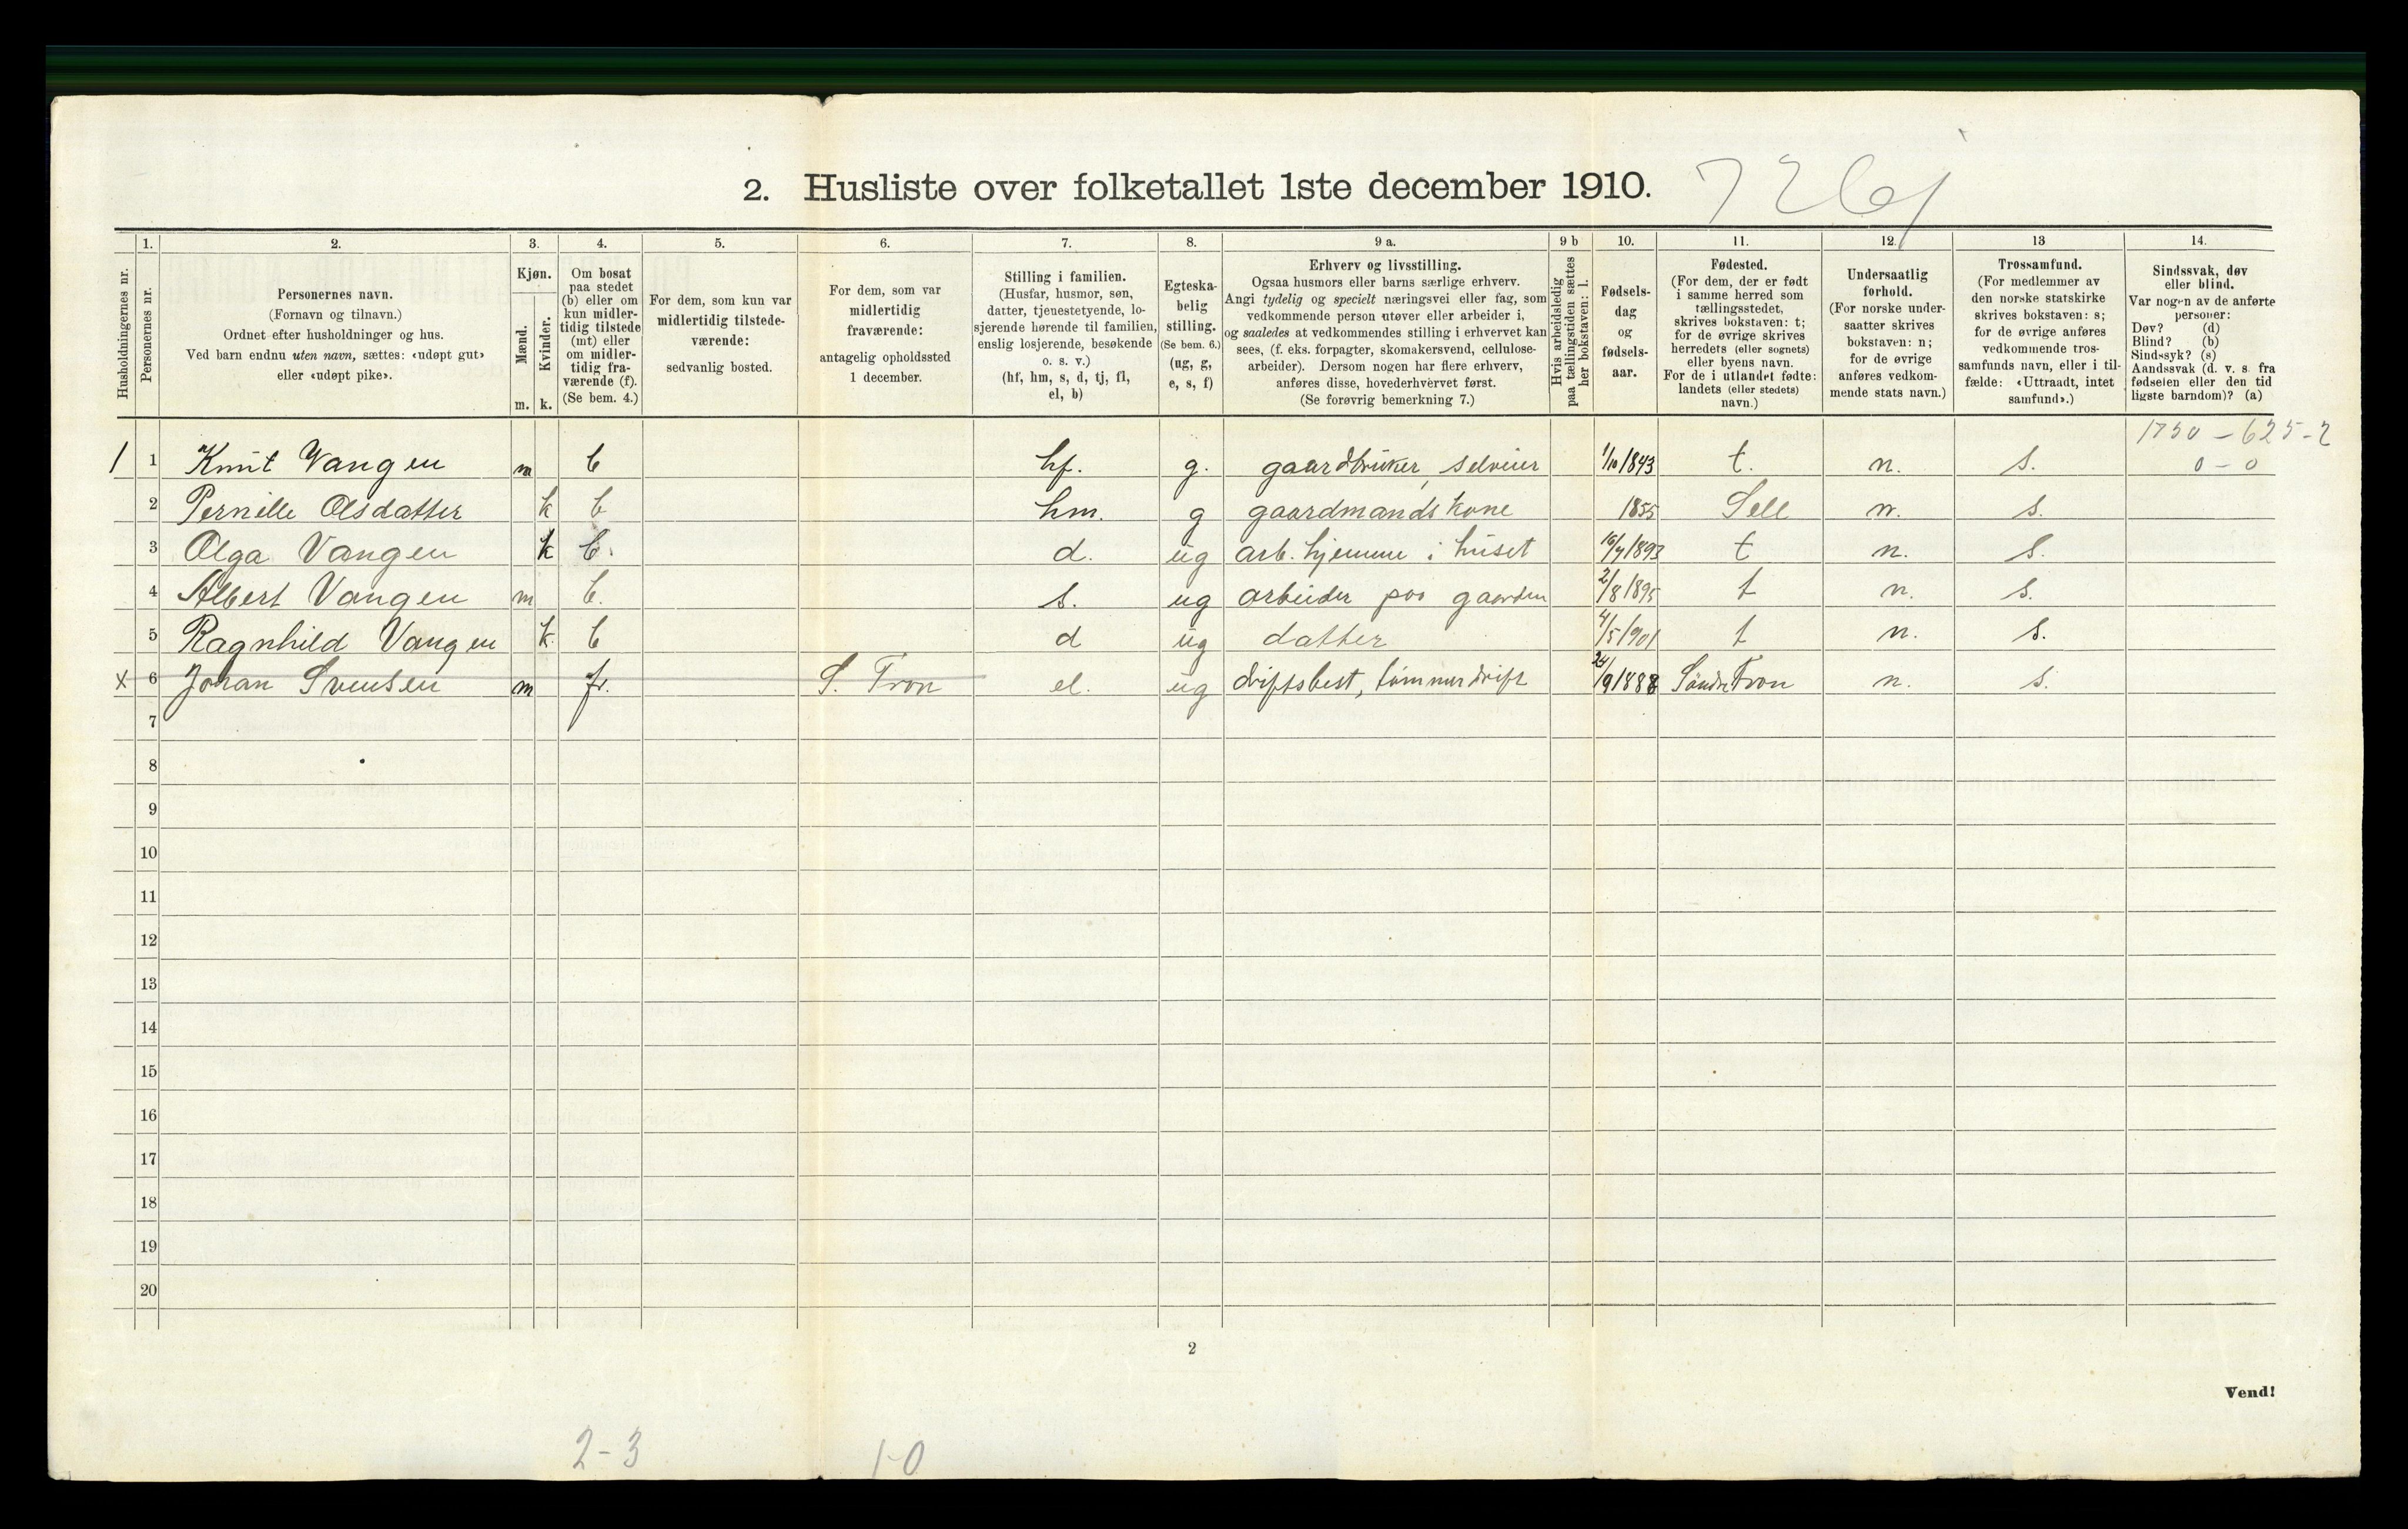 2. Husliste over folketallet 1ste december 1910.
Husholdningernes nr.
1. Personernes nr.
2. Personernes navn.
(Fornavn og tilnavn.)
Ordnet efter husholdninger og hus.
Ved barn endnu uten navn, sættes: «udøpt gut»
eller «udøpt pike».
3. Kjøn.
Mænd. m.
Kvinder. k.
4. Om bosat
paa stedet
(b) eller om
kun midler-
tidig tilstede
(mt) eller
om midler-
tidig fra-
værende (f).
(Se bem. 4.)
5. For dem, som kun var
midlertidig tilstede-
værende:
sedvanlig bosted.
6. For dem, som var
midlertidig
fraværende:
antagelig opholdssted
1 december.
7. Stilling i familien.
(Husfar, husmor, søn,
datter, tjenestetyende, lo-
sjerende hørende til familien,
enslig losjerende, besøkende
o. s. v.)
(hf, hm, s, d, tj, fl,
el, b)
8. Egteska-
belig
stilling.
(Se bem. 6.)
(ug, g,
e, s, f)
9 a. Erhverv og livsstilling.
Ogsaa husmors eller barns særlige erhverv.
Angi tydelig og specielt næringsvei eller fag, som
vedkommende person utøver eller arbeider i,
og saaledes at vedkommendes stilling i erhvervet kan
sees, (f. eks. forpagter, skomakersvend, cellulose-
arbeider). Dersom nogen har flere erhverv,
anføres disse, hovederhvervet først.
(Se forøvrig bemerkning 7.)
9 b Hvis arbeidsledig
paa tællingstiden sættes
her bokstaven: l.
10. Fødsels-
dag
og
fødsels-
aar.
11. Fødested.
(For dem, der er født
i samme herred som
tællingsstedet,
skrives bokstaven: t;
for de øvrige skrives
herredets (eller sognets)
eller byens navn.
For de i utlandet fødte:
landets (eller stedets)
navn.)
12. Undersaatlig
forhold.
(For norske under-
saatter skrives
bokstaven: n;
for de øvrige
anføres vedkom-
mende stats navn.)
13 Trossamfund.
(For medlemmer av
den norske statskirke
skrives bokstaven: s;
for de øvrige anføres
vedkommende tros-
samfunds navn, eller i til-
fælde: «Uttraadt, intet
samfund».)
14. Sindssvak, døv
eller blind.
Var nogen av de anførte
personer:
Døv? (d)
Blind? (b)
Sindssyk? (s)
Aandssvak (d. v. s. fra
fødselen eller den tid
ligste barndom)? (a)
1750 - 625 - 2
0 - 0
1 1 Knut Vangen m b hf. g. gaardbruker, selveier 1/10 1843 t. n. s.
2 Pernille Olsdatter k b hm. g gaardmandskone 1855 Sell n. s.
3 Olga Vangen k b. d. ug arb. hjemme i huset 16/7 1893 t n. s.
4 Albert Vangen m b. s. ug arbeider paa gaarden 2/8 1895 t n. s.
5 Ragnhild Vangen k b d ug datter 4/5 1901 t n. s.
x 6 Johan Svensen m fr. S. Fron el. ug driftsbest, tømmerdrift 24/9 1888 Søndre Fron n. s.
7
8
9
10
11
12
13
14
15
16
17
18
19
20
2
Vend!
2-3
1-0